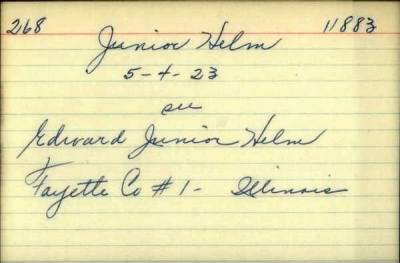 268 11883
Junior Helm
5-4-23
see
Edward Junior Helm
Fayette Co #1- Illinois